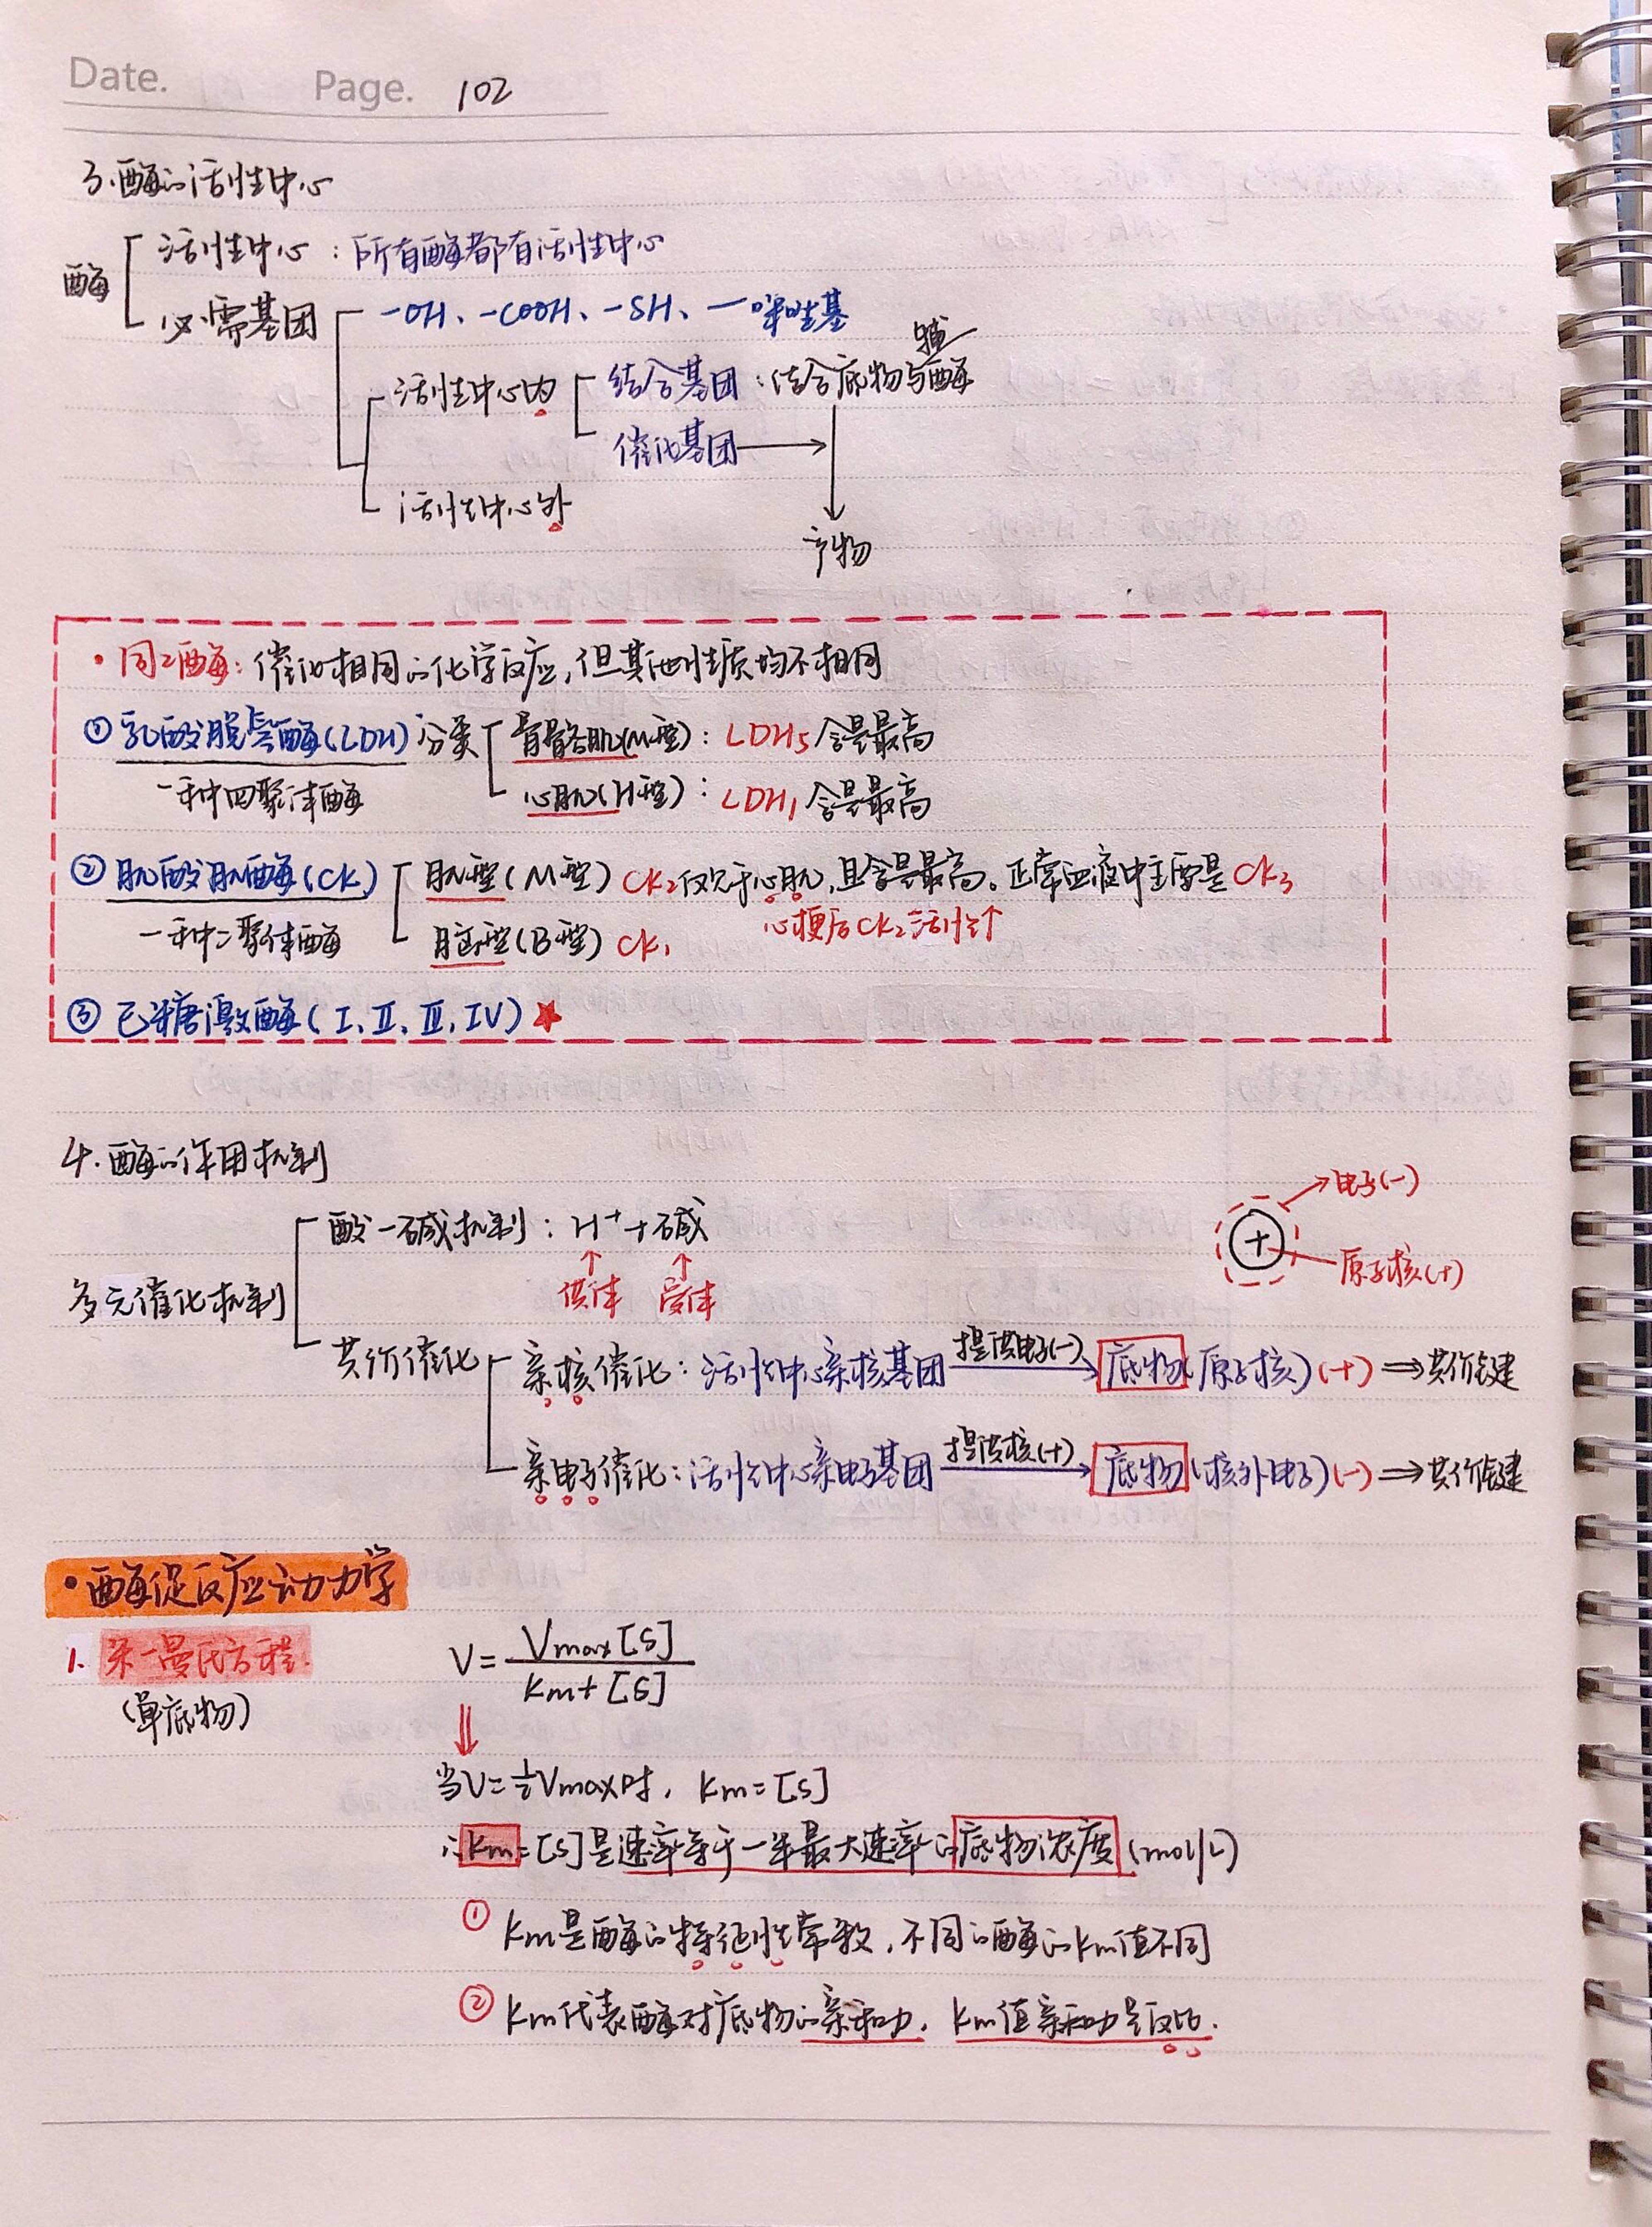 Date. Page. 102
3.酶的活性中心
酶
活性中心：所有酶都有活性中心
必需基团
-OH、-COOH、-SH、-咪唑基
活性中心内
结合基团：结合底物与辅酶
催化基团
活性中心外
产物
·同工酶：催化相同的化学反应,但其他性质均不相同
①乳酸脱氢酶(LDH)分类
骨骼肌(M型)：LDH5含量最高
一种四聚体酶
心肌(H型)：LDH1含量最高
②肌酸肌酶(CK)
肌型(M型) CK2仅见于心肌,且含量最高。正常血液中主要是CK3
心梗后CK2活性↑
一种二聚体酶
脑型(B型) CK1
③己糖激酶(I、II、III、IV)★
4.酶的作用机制
电子(-)
+
原子核(+)
多元催化机制
酸-碱机制：H⁺+碱
↑ ↑
供体 受体
共价催化
亲核催化：活性中心亲核基团 提供电子(-)→ 底物(原子核)(+)⇒共价键
亲电子催化：活性中心亲电子基团 提供核(+)→ 底物(核外电子)(-)⇒共价键
·酶促反应动力学
1. 米-曼氏方程.
(单底物)
V=Vmax[S]/Km+[S]
⇓
当V=½Vmax时，Km=[S]
∴Km=[S]是速率等于一半最大速率的底物浓度(mol/L)
①Km是酶的特征性常数，不同的酶的Km值不同
②Km代表酶对底物的亲和力，Km值亲和力呈反比.